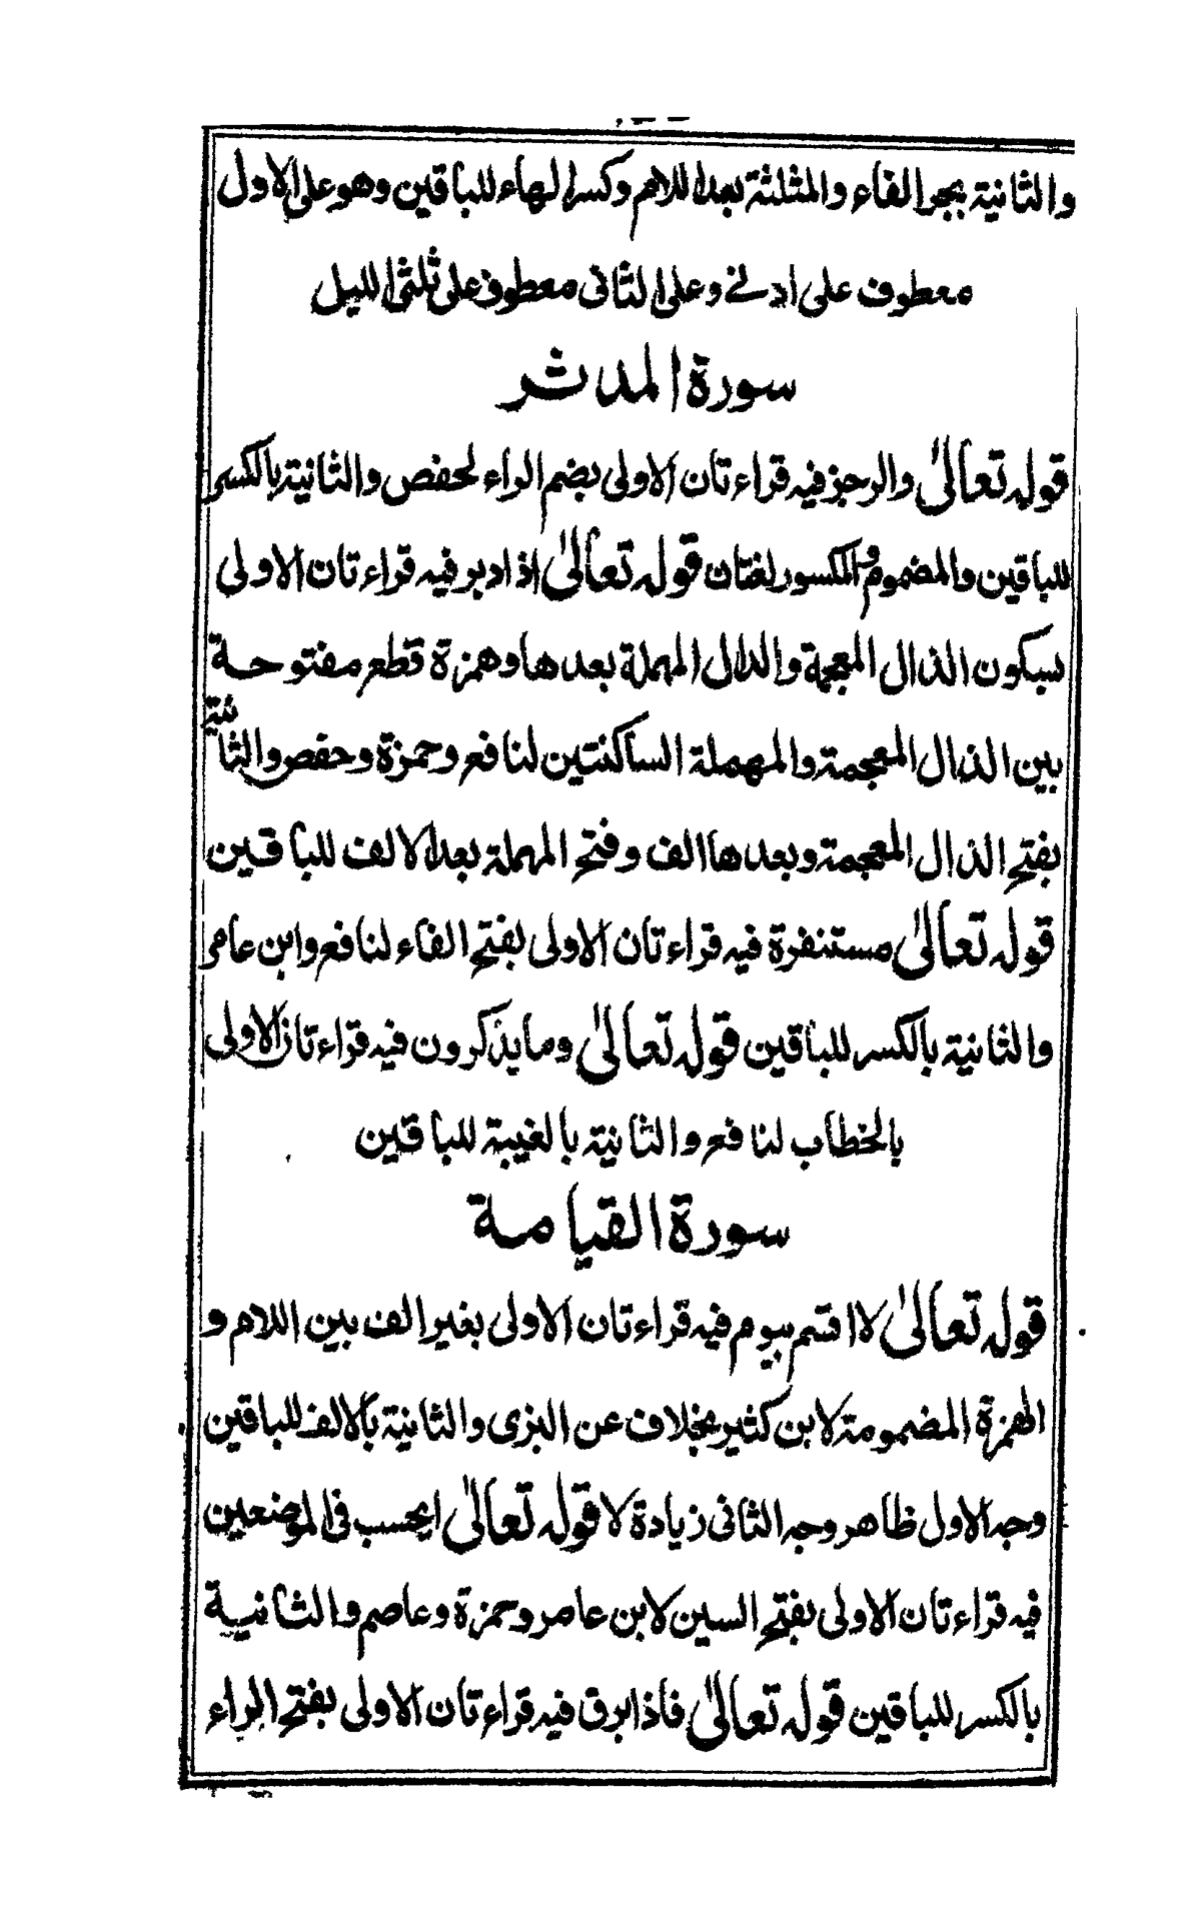 والثانية بجر الفاء والمثلثة بعد اللام وكسر الهاء للباقين وهو على الاول
معطوف على ادنے وعلى الثانى معطوف على ثلثى الليل
سورة المدثر
قوله تعالىٰ والرجز فيه قراءتان الاولى بضم الراء لحفص والثانية بالكسر
للباقين والمضموم والمكسور لغتان قوله تعالىٰ اذ ادبر فيه قراءتان الاولى
بسكون الذال المعجمة والدال المهملة بعدها وهمزة قطع مفتوحة
بين الذال المعجمة والمهملة الساكنتين لنافع وحمزة وحفص والثانية
بفتح الذال المعجمة وبعدها الف وفتح المهملة بعد الالف للباقين
قوله تعالىٰ مستنفرة فيه قراءتان الاولى بفتح الفاء لنافع وابن عامر
والثانية بالكسر للباقين قوله تعالىٰ وما يذكرون فيه قراءتان الاولى
بالخطاب لنافع والثانية بالغيبة للباقين
سورة القيامة
قوله تعالىٰ لا اقسم بيوم فيه قراءتان الاولى بغير الف بين اللام و
الهمزة المضمومة لابن كثير بخلاف عن البزى والثانية بالالف للباقين
وجه الاول ظاهر وجه الثانى زيادة لا قوله تعالىٰ ايحسب فى الموضعين
فيه قراءتان الاولى بفتح السين لابن عامر وحمزة وعاصم والثانية
بالكسر للباقين قوله تعالىٰ فاذا برق فيه قراءتان الاولى بفتح الراء